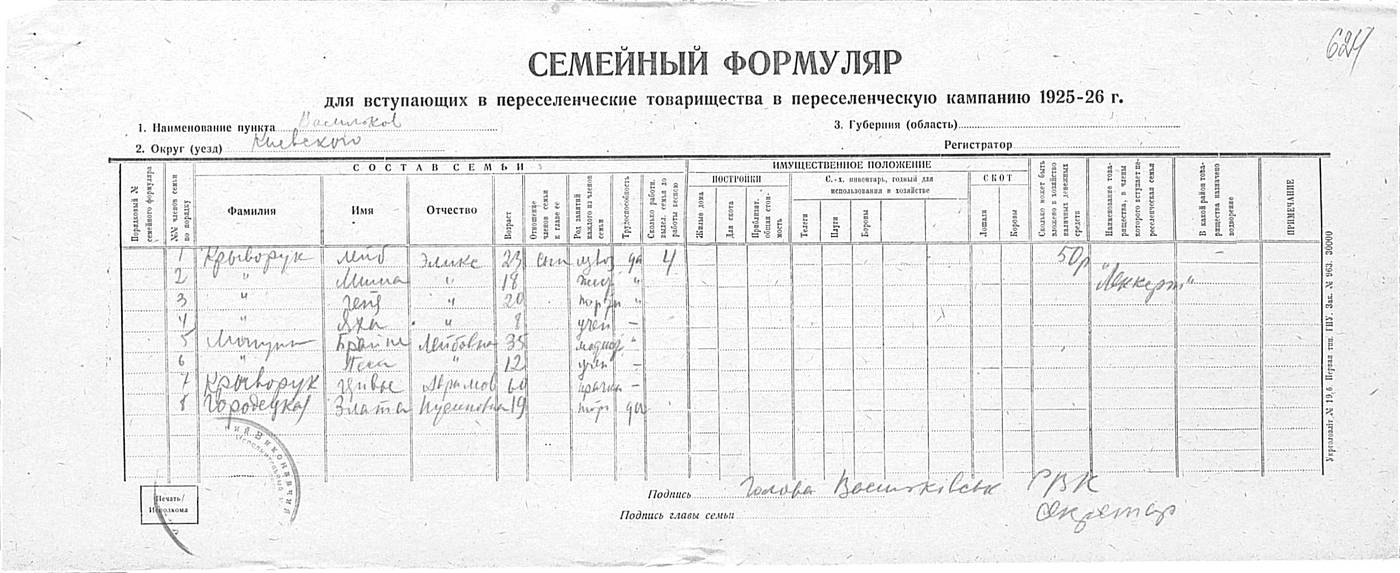 624
СЕМЕЙНЫЙ ФОРМУЛЯР
для вступающих в переселенческие товарищества в переселенческую кампанию 1925-26 г.
1. Наименование пункта Васильков
3. Губерния (область)
2. Округ (уезд) Киевского
Регистратор
Порядковый № семейного формуляра
№№ членов семьи по порядку
СОСТАВ СЕМЬИ
Фамилия
Имя
Отчество
Возраст
Отношение членов семьи к главе ее
Род занятий каждого из членов семьи
Трудоспособность
Сколько работн. выдел. семья до работы весною
ИМУЩЕСТВЕННОЕ ПОЛОЖЕНИЕ
ПОСТРОЙКИ
Жилые дома
Для скота
Приблизит. общая стоимость
С.-х. инвентарь, годный для использования в хозяйстве
Телеги
Плуги
Бороны
СКОТ
Лошади
Коровы
Сколько может быть вложено в хозяйство наличных денежных средств
Наименование товарищества, в члены которого вступает переселенческая семья
В какой район товарищества назначено водворение
ПРИМЕЧАНИЕ
1 Крыворук Лейб Элике 23 сын да 4 50р –
2 " " 18 " "Леккерт"
3 " " 20 "
4 " Яха " 8 учен –
5 Лейбовна 35 "
6 " Песя " 12 учен –
7 Крыворук Цивье Абрамов 60 прачка –
8 Городецкая Злата 19 да
Печать Исполкома
Подпись Голова Васильківськ РВК
Секретар
Подпись главы семьи
Укрголовліт № 19,6. Первая тип. ГПУ. Зак. № 963. 30000